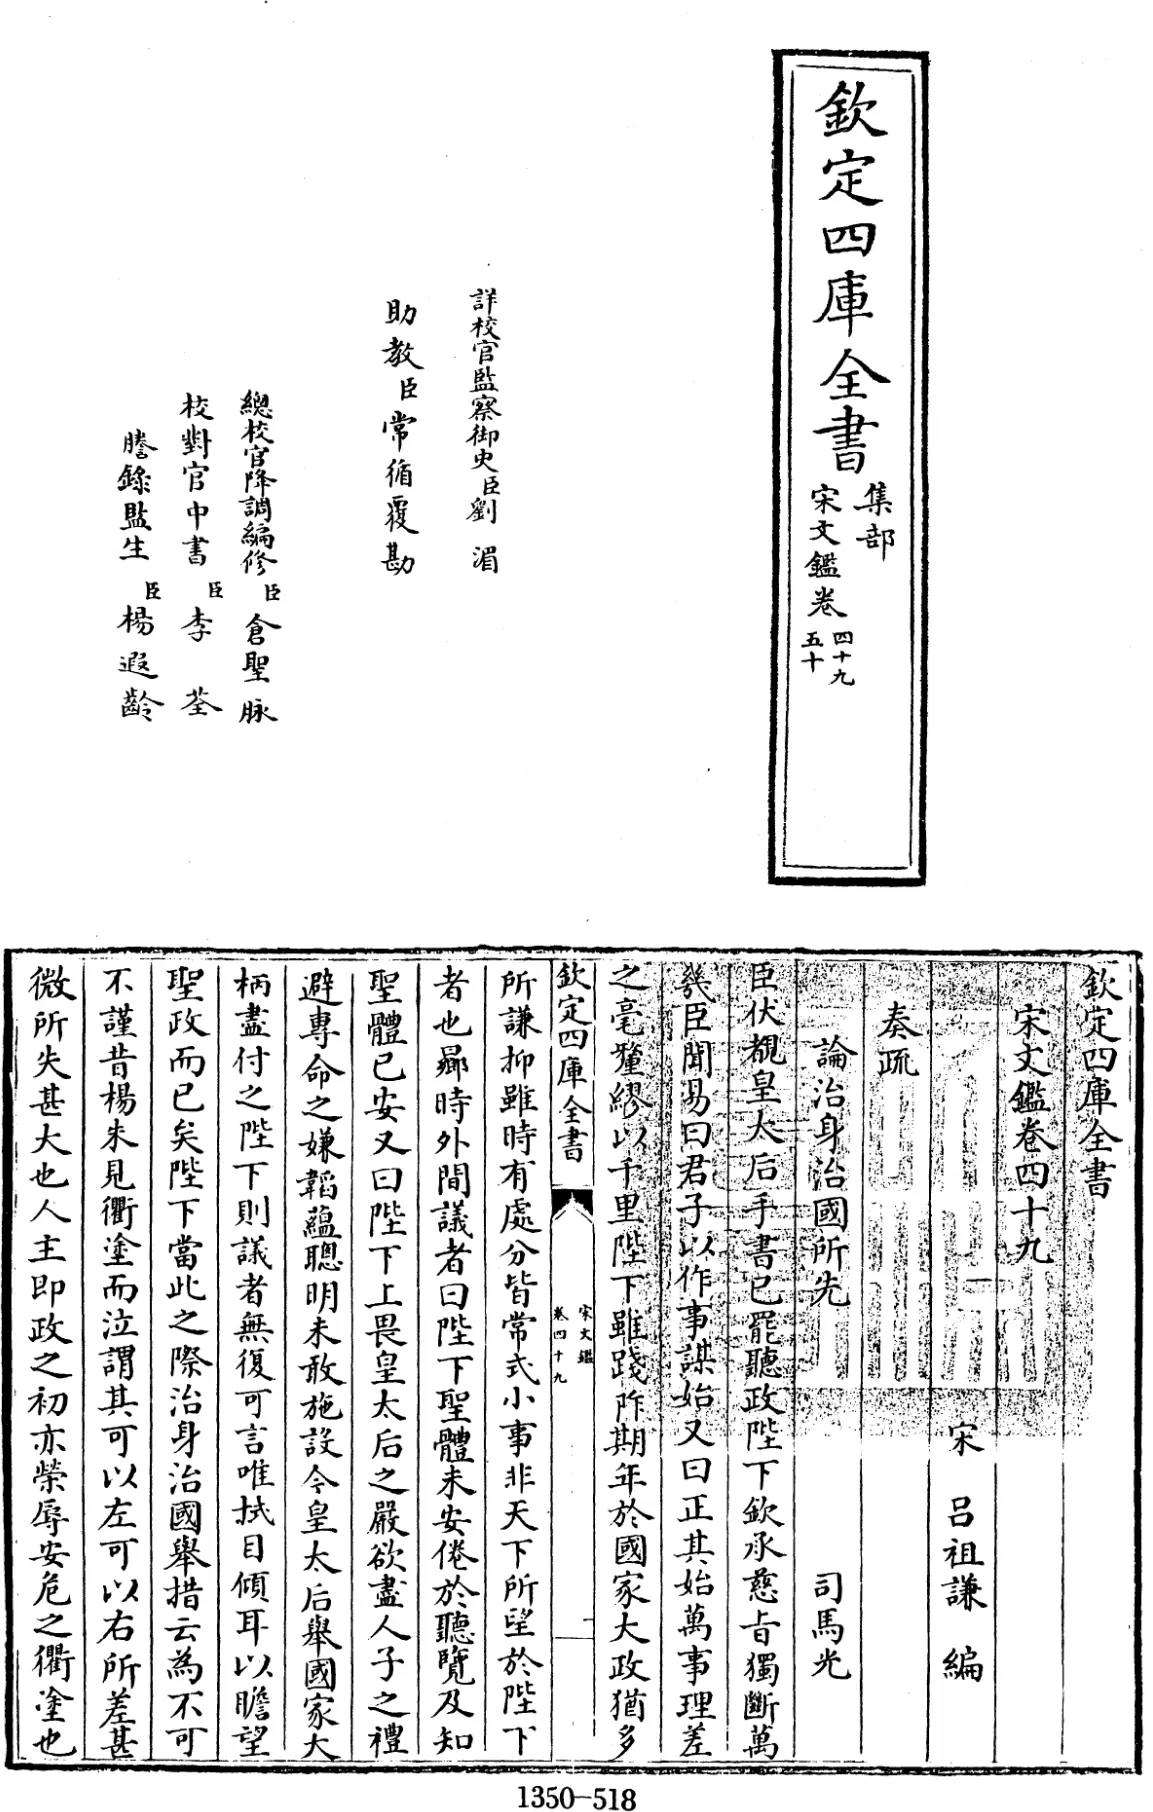 欽定四庫全書
集部
宋文鑑卷
四十九
五十
詳校官監察御史臣劉湄
助教臣常循覆勘
總校官降調編修臣倉聖脉
校對官中書臣李荃
謄錄監生臣楊遐齡
欽定四庫全書
宋文鑑卷四十九
宋 呂祖謙 編
奏疏
論治身治國所先 司馬光
臣伏覩皇太后手書已罷聽政陛下欽承慈旨獨斷萬
幾臣聞易曰君子以作事謀始又曰正其始萬事理差
之毫釐繆以千里陛下雖踐阼期年於國家大政猶多
欽定四庫全書
宋文鑑
卷四十九
一
所謙抑雖時有處分皆常式小事非天下所望於陛下
者也曏時外間議者曰陛下聖體未安倦於聽覽及知
聖體已安又曰陛下上畏皇太后之嚴欲盡人子之禮
避專命之嫌韜蘊聰明未敢施設今皇太后舉國家大
柄盡付之陛下則議者無復可言唯拭目傾耳以瞻望
聖政而已矣陛下當此之際治身治國舉措云為不可
不謹昔楊朱見衢塗而泣謂其可以左可以右所差甚
微所失甚大也人主即政之初亦榮辱安危之衢塗也
1350-518